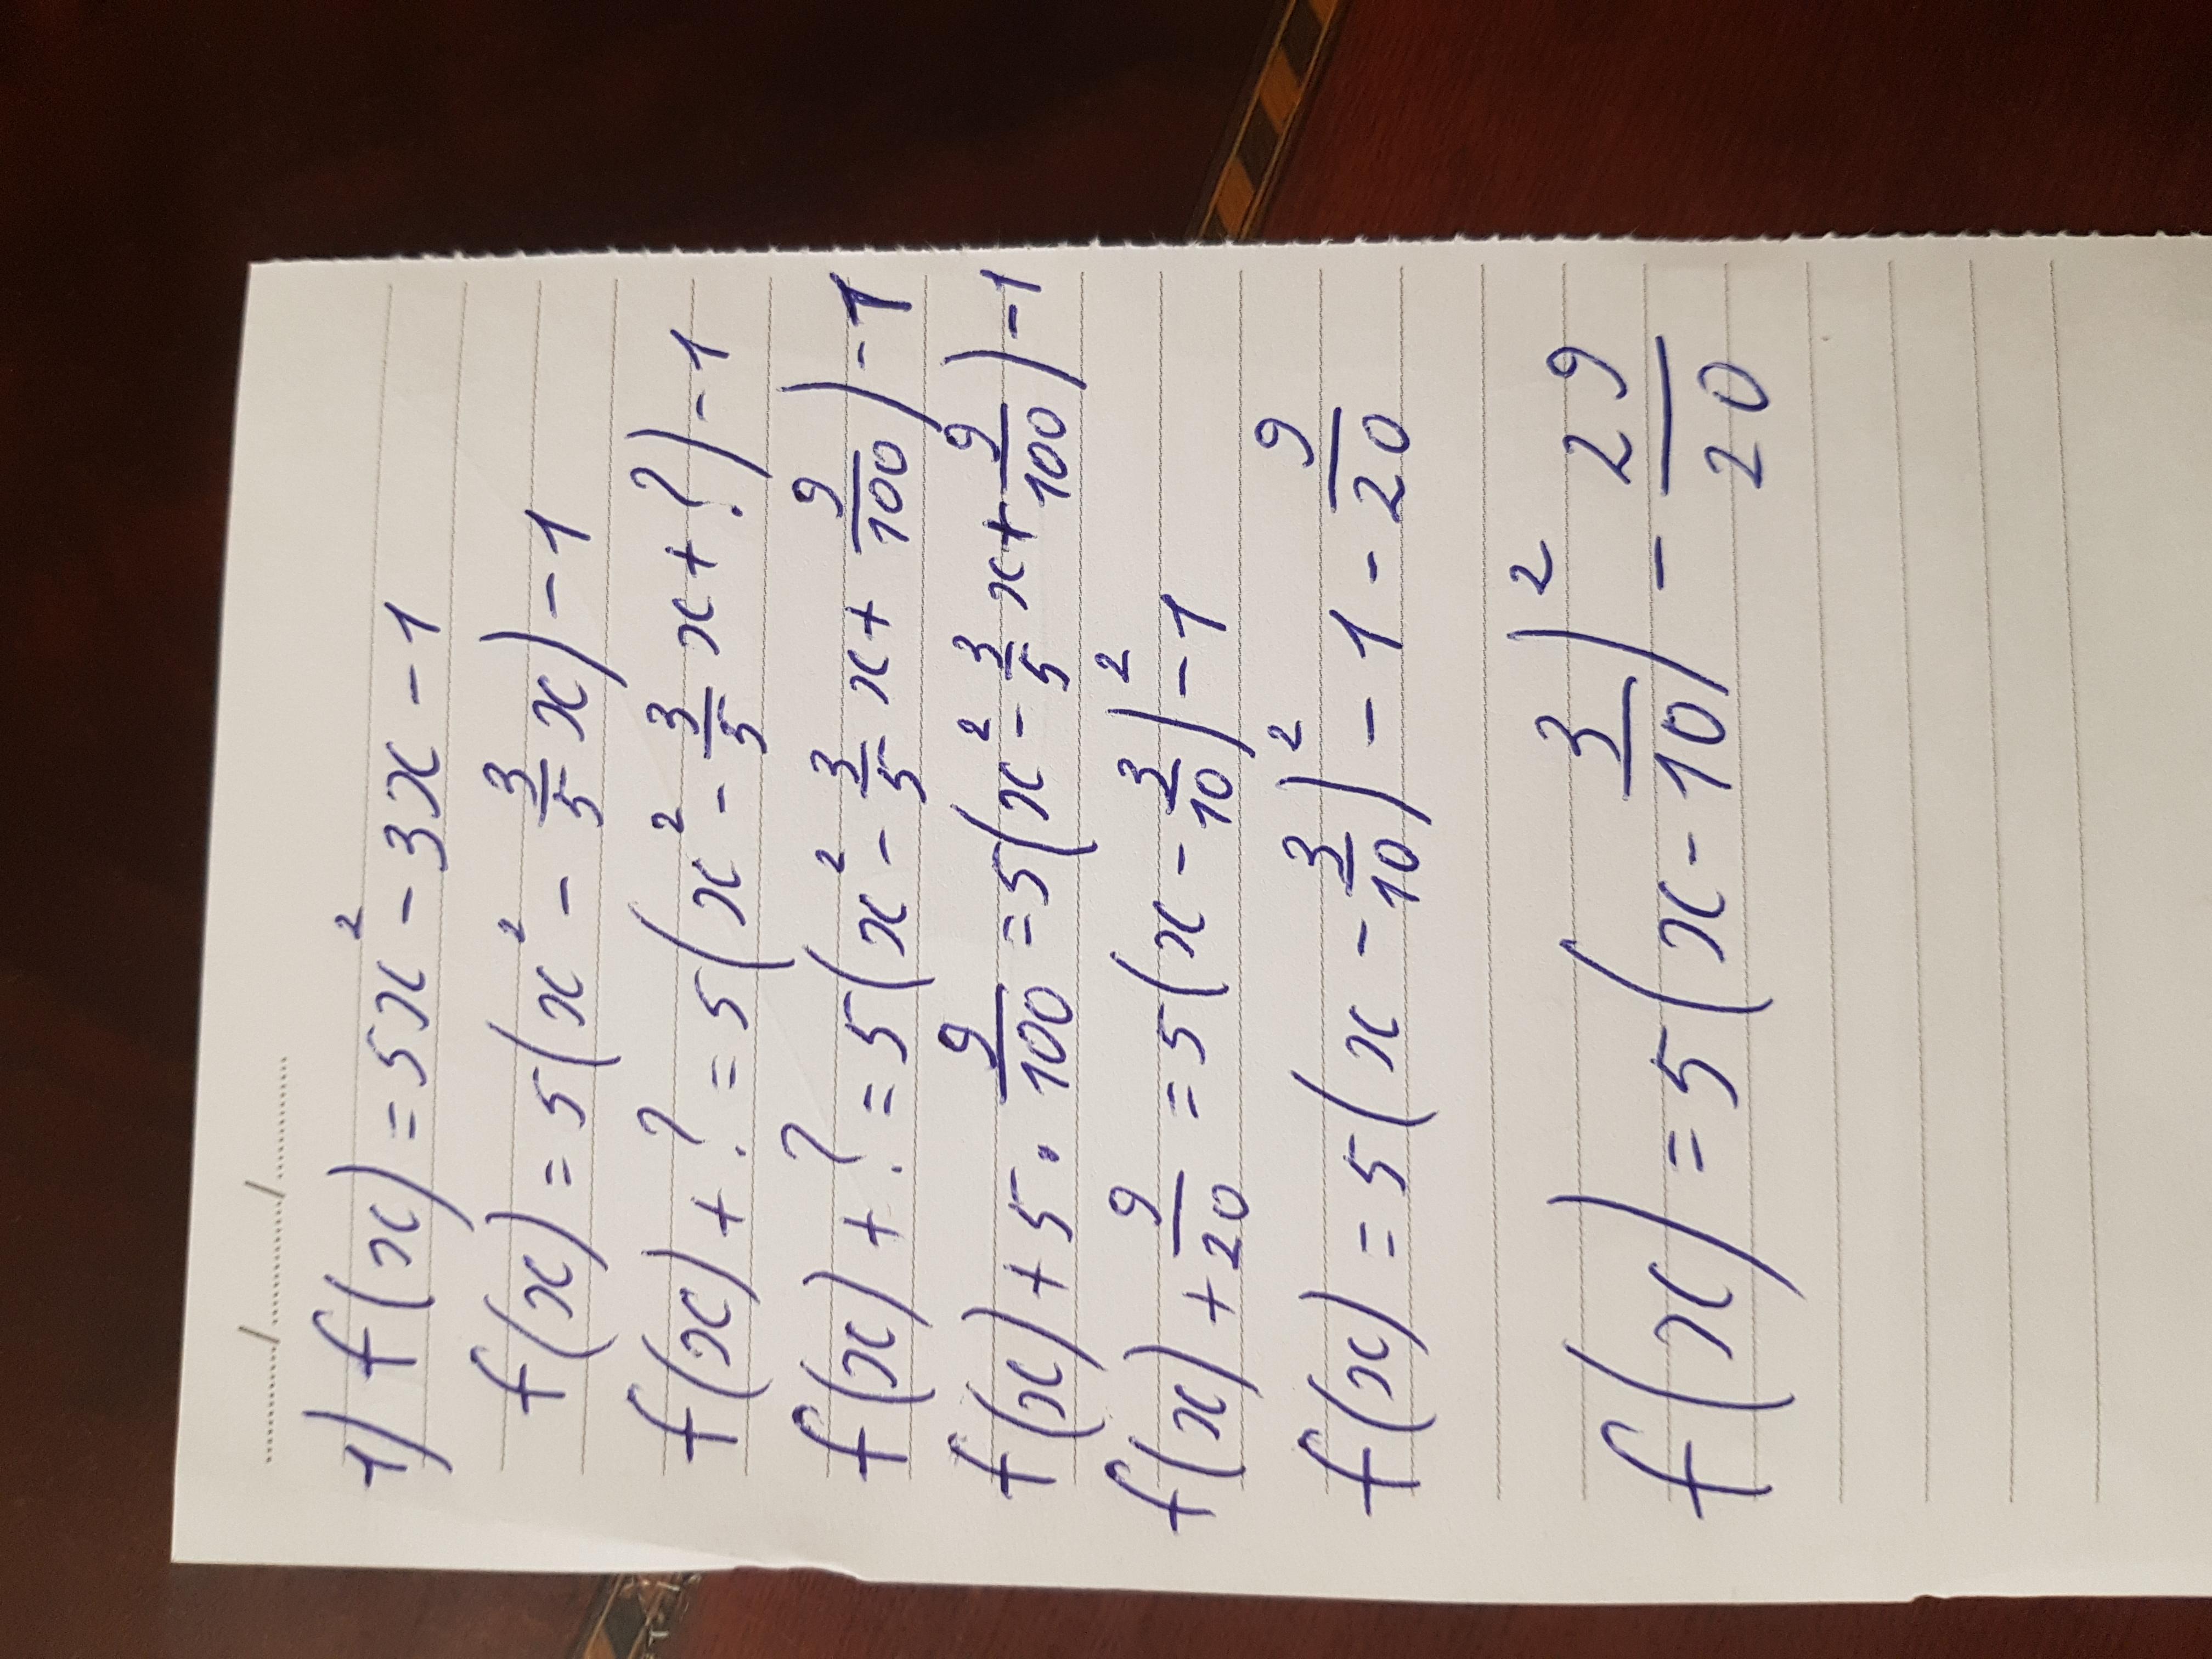 ........./........./.........
1) f(x) = 5x² - 3x - 1
f(x) = 5(x² - 3/5 x) - 1
f(x) + ? = 5(x² - 3/5 x + ?) - 1
f(x) + ? = 5(x² - 3/5 x + 9/100) - 1
f(x) + 5 · 9/100 = 5(x² - 3/5 x + 9/100) - 1
f(x) + 9/20 = 5(x - 3/10)² - 1
f(x) = 5(x - 3/10)² - 1 - 9/20
f(x) = 5(x - 3/10)² - 29/20